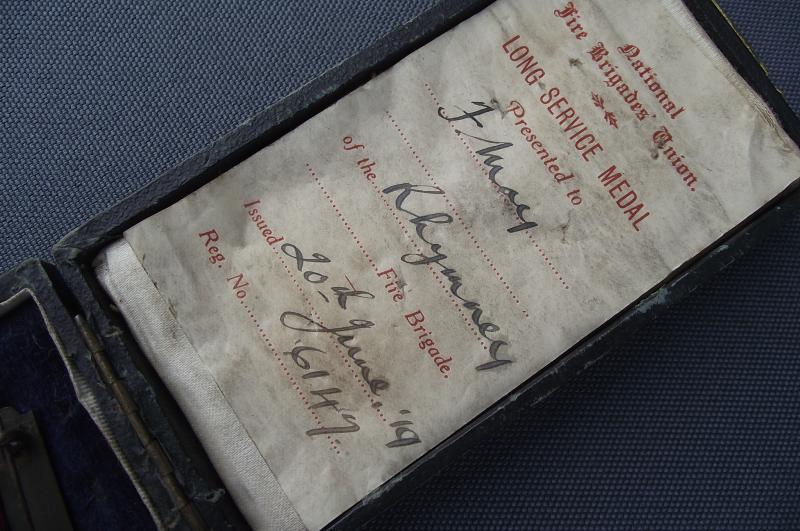 National
Fire Brigades' Union.
LONG SERVICE MEDAL
Presented to
F. May
of the Rhymney
Fire Brigade.
Issued 20th June, '19
Reg. No. 6147